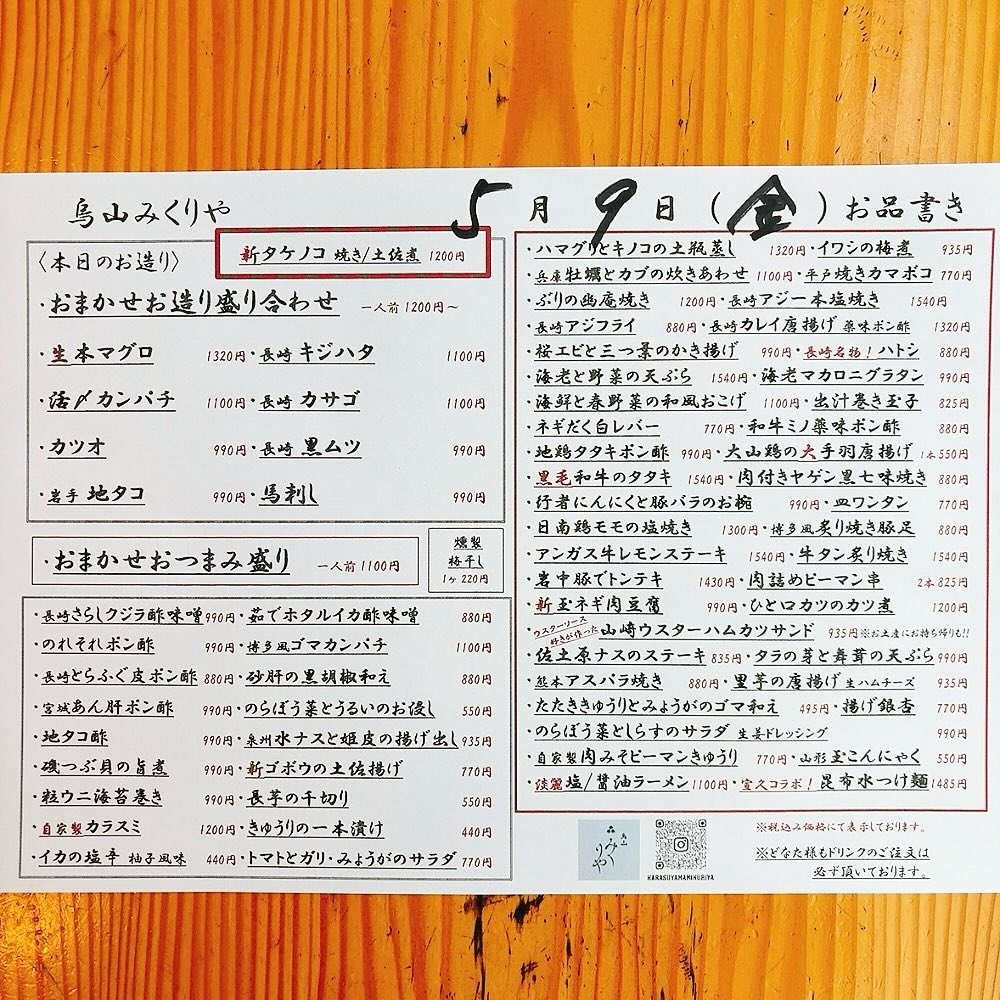 烏山みくりや 5月9日(金)お品書き
〈本日のお造り〉
新タケノコ 焼き/土佐煮 1200円
・おまかせお造り盛り合わせ 一人前 1200円～
・生本マグロ 1320円・長崎 キジハタ 1100円
・活〆カンパチ 1100円・長崎 カサゴ 1100円
・カツオ 990円・長崎 黒ムツ 990円
・岩手 地タコ 990円・馬刺し 990円
・おまかせおつまみ盛り 一人前 1100円
燻製
梅干し
1ヶ 220円
・長崎さらしクジラ酢味噌 990円・茹でホタルイカ酢味噌 880円
・のれそれポン酢 990円・博多風ゴマカンパチ 1100円
・長崎とらふぐ皮ポン酢 880円・砂肝の黒胡椒和え 880円
・宮城あん肝ポン酢 990円・のらぼう菜とうるいのお浸し 550円
・地タコ酢 990円・泉州水ナスと姫皮の揚げ出し 935円
・磯つぶ貝の旨煮 990円・新ゴボウの土佐揚げ 770円
・粒ウニ海苔巻き 990円・長芋の千切り 550円
・自家製カラスミ 1200円・きゅうりの一本漬け 440円
・イカの塩辛 柚子風味 440円・トマトとガリ・みょうがのサラダ 770円
・ハマグリとキノコの土瓶蒸し 1320円・イワシの梅煮 935円
・兵庫 牡蠣とカブの炊きあわせ 1100円・平戸焼きカマボコ 770円
・ぶりの幽庵焼き 1200円・長崎アジ一本塩焼き 1540円
・長崎アジフライ 880円・長崎カレイ唐揚げ 薬味ポン酢 1320円
・桜エビと三つ葉のかき揚げ 990円・長崎名物！ハトシ 880円
・海老と野菜の天ぷら 1540円・海老マカロニグラタン 990円
・海鮮と春野菜の和風おこげ 1100円・出汁巻き玉子 825円
・ネギだく白レバー 770円・和牛ミノ薬味ポン酢 880円
・地鶏タタキポン酢 990円・大山鶏の大手羽唐揚げ 1本550円
・黒毛和牛のタタキ 1540円・肉付きヤゲン黒七味焼き 880円
・行者にんにくと豚バラのお椀 990円・皿ワンタン 770円
・日南鶏モモの塩焼き 1300円・博多風炙り焼き豚足 880円
・アンガス牛レモンステーキ 1540円・牛タン炙り焼き 1540円
・岩中豚でトンテキ 1430円・肉詰めピーマン串 2本825円
・新玉ネギ肉豆腐 990円・ひと口カツのカツ煮 1200円
・ウスターソース好きが作った 山﨑ウスターハムカツサンド 935円※お土産にお持ち帰りも!!
・佐土原ナスのステーキ 835円・タラの芽と舞茸の天ぷら 990円
・熊本アスパラ焼き 880円・里芋の唐揚げ 生ハムチーズ 935円
・たたききゅうりとみょうがのゴマ和え 495円・揚げ銀杏 770円
・のらぼう菜としらすのサラダ 生姜ドレッシング 990円
・自家製肉みそピーマンきゅうり 770円・山形玉こんにゃく 550円
・淡麗塩/醤油ラーメン 1100円・宣久コラボ！昆布水つけ麺 1485円
烏山
みくりや
KARASUYAMAMIKURIYA
※税込み価格にて表示しております。
※どなた様もドリンクのご注文は
必ず頂いております。